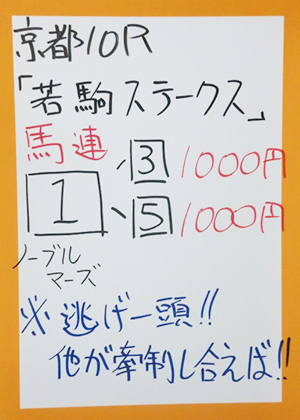 京都10R
「若駒ステークス」
馬連 3 1000円
1 5 1000円
ノーブル
マーズ
※逃げ一頭!!
他が牽制し合えば!!